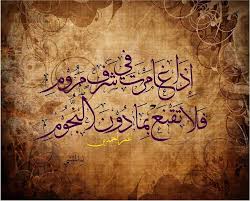 إذا غامرت في شرف مروم
فلا تقنع بما دون النجوم